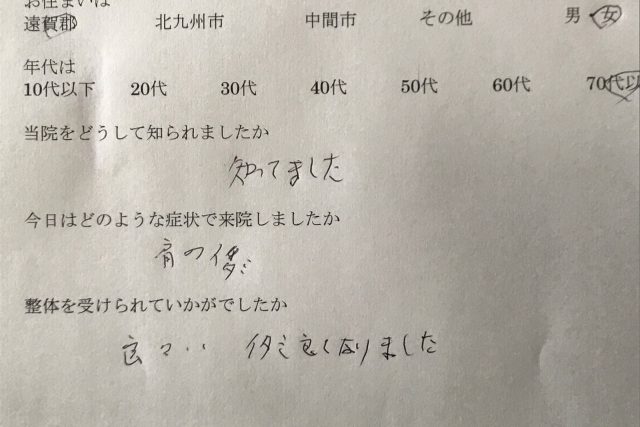 お住まいは
遠賀郡 北九州市 中間市 その他 男・女
年代は
10代以下 20代 30代 40代 50代 60代 70代以
当院をどうして知られましたか
知ってました
今日はどのような症状で来院しましたか
肩の
整体を受けられていかがでしたか
良くなりました